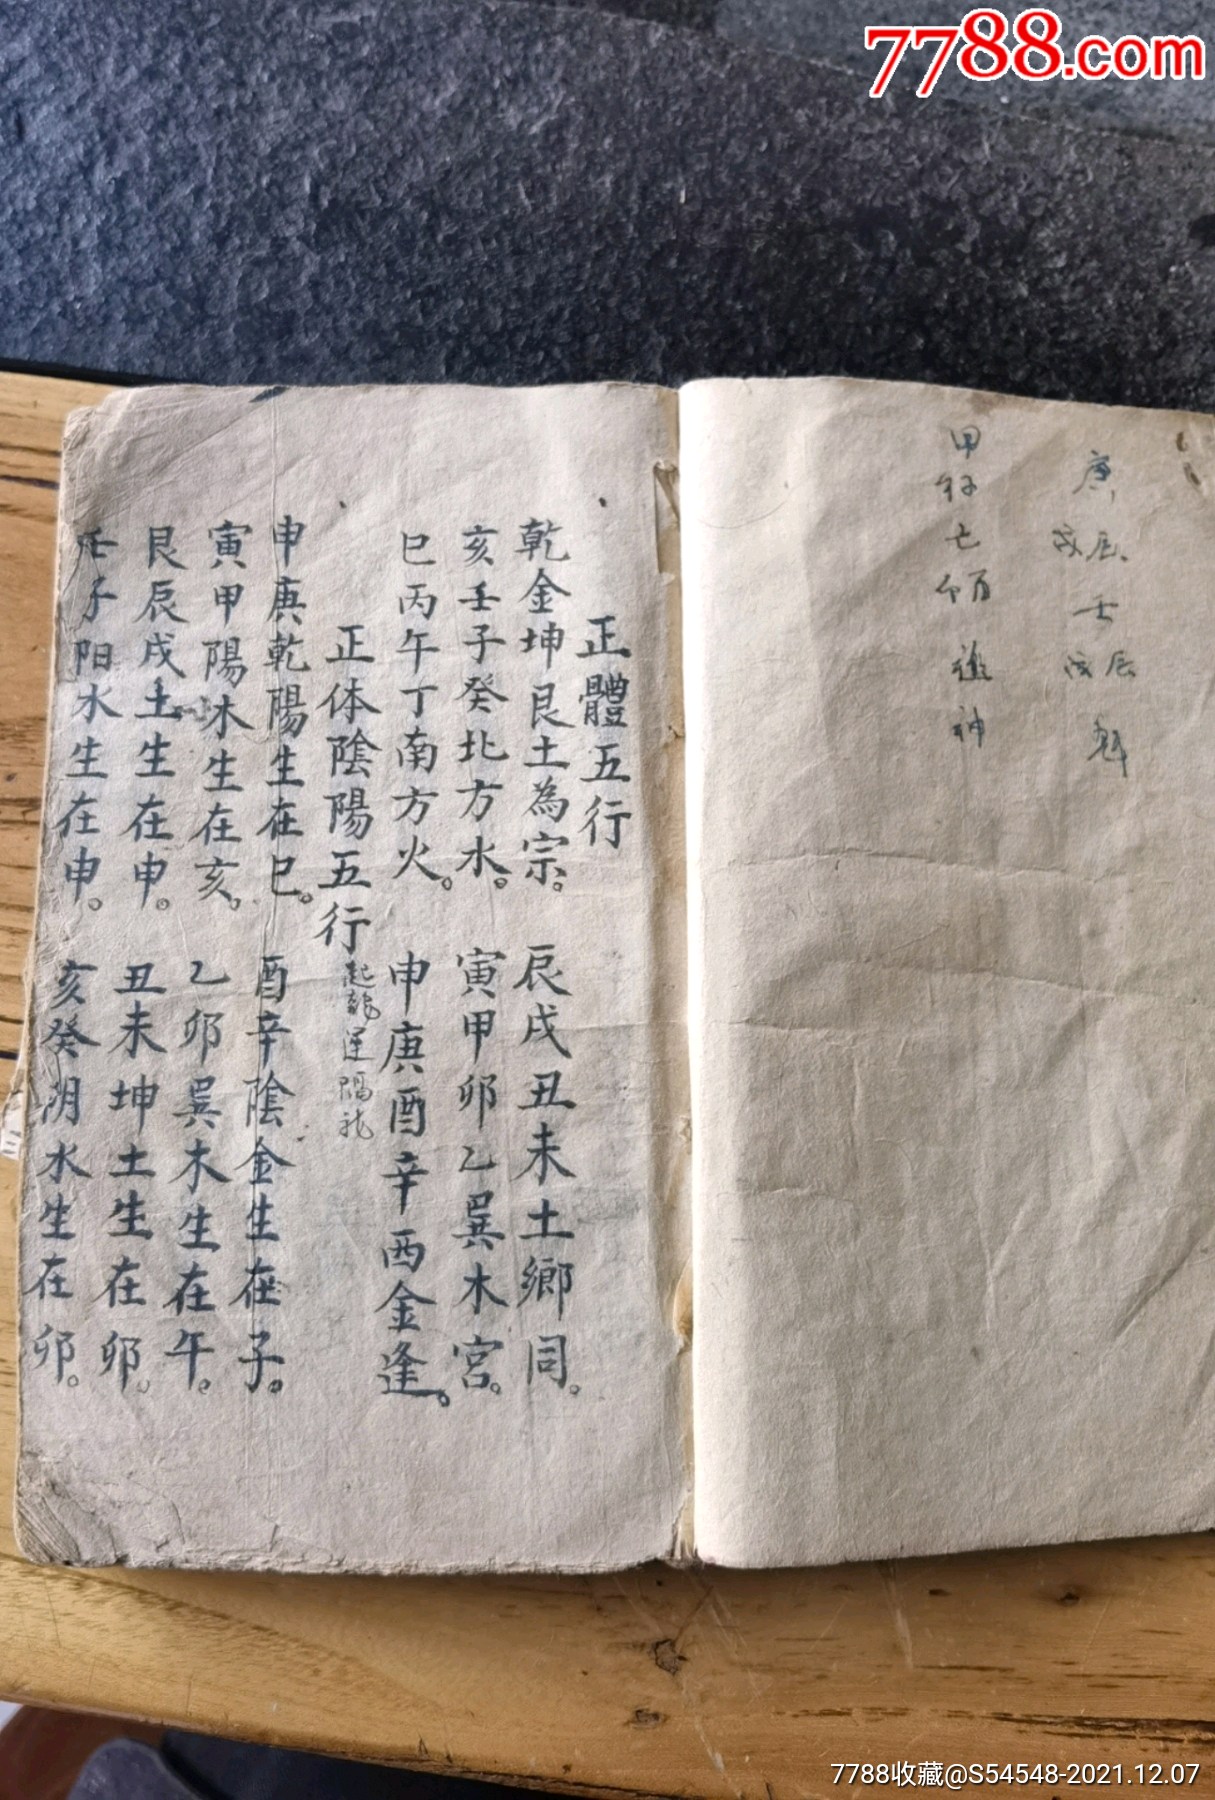 7788.com
庚辰壬辰魁
戌戌
甲好己酉進神
正體五行
乾金坤艮土為宗。辰戌丑未土鄉同。
亥壬子癸北方水。寅甲卯乙巽木宮。
巳丙午丁南方火。申庚酉辛西金逢。
正体陰陽五行
申庚乾陽生在巳。酉辛陰金生在子。
寅甲陽木生在亥。乙卯巽木生在午。
艮辰戌土生在申。丑未坤土生在卯。
壬子阳水生在申。亥癸阴水生在卯。
7788收藏@S54548-2021.12.07